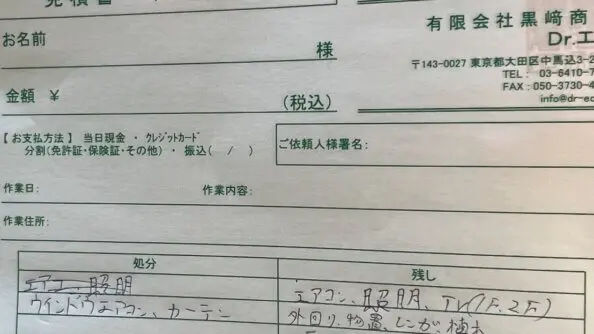 見積書
有限会社黒﨑商
Dr.エ
お名前
様
〒143-0027 東京都大田区中馬込3-2
TEL: 03-6410-7
FAX: 050-3730-4
info@dr-ec
金額 ¥
(税込)
【お支払方法】 当日現金 ・ クレジットカード
分割(免許証・保険証・その他) ・ 振込( / )
ご依頼人様署名:
作業日:
作業内容:
作業住所:
処分
残し
エアコン、照明
エアコン、照明、TV(1F.2F)
ウインドウエアコン、カーテン
外回り、物置、レンガ、植木